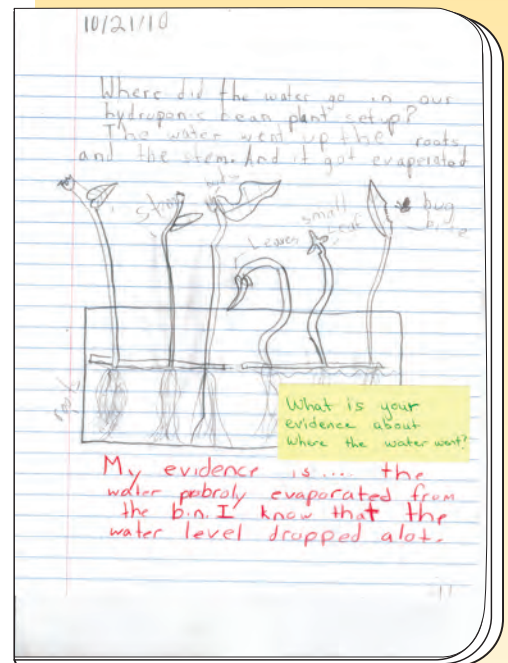 10/21/10
Where did the water go in our
hydroponic bean plant setup?
The water went up the roots
and the stem. And it got evaporated
stem
Leaves
small
Leaf
bug
bite
root
What is your
evidence about
where the water went?
My evidence is... the
water pobroly evaporated from
the bin. I know that the
water level dropped alot.
11